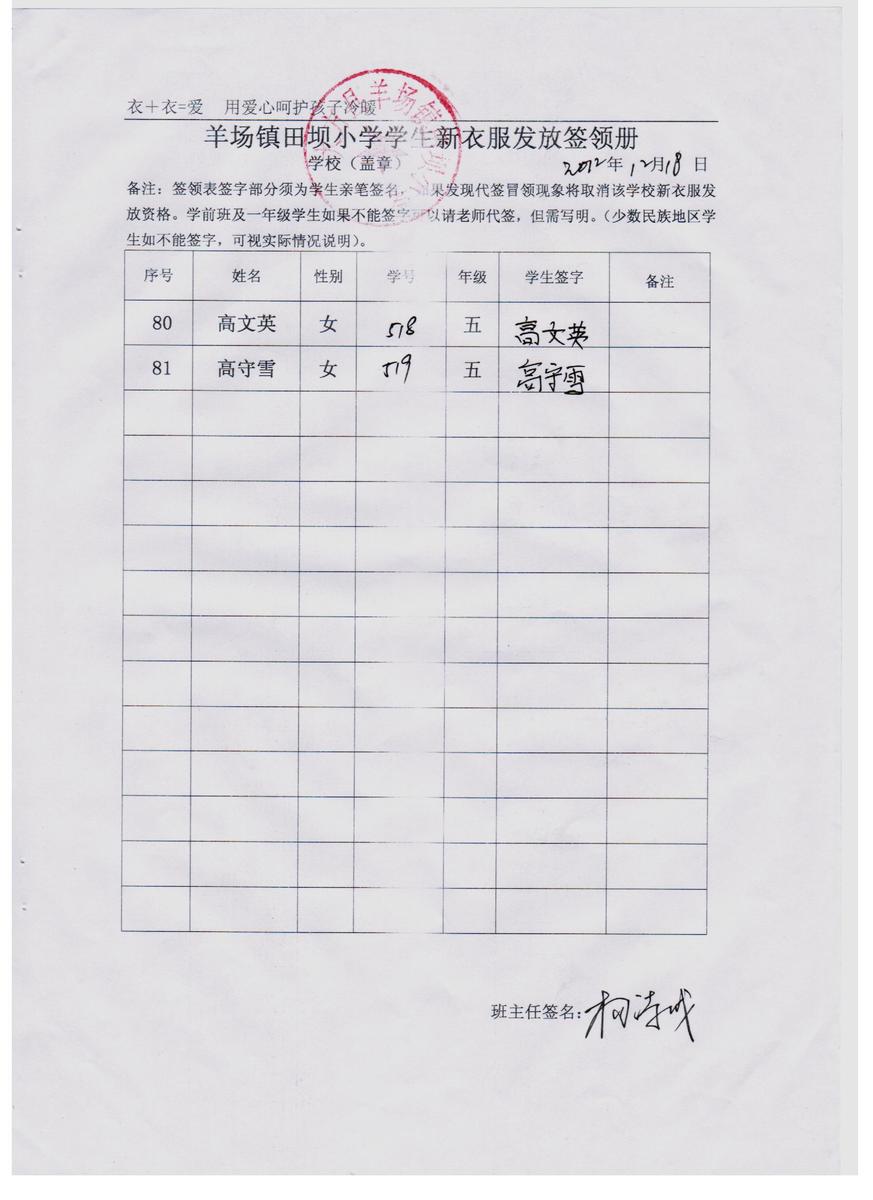 衣+衣=爱 用爱心呵护孩子冷暖
羊场镇田坝小学学生新衣服发放签领册
学校（盖章） 2012年12月18日
备注：签领表签字部分须为学生亲笔签名，如果发现代签冒领现象将取消该学校新衣服发
放资格。学前班及一年级学生如果不能签字可以请老师代签，但需写明。（少数民族地区学
生如不能签字，可视实际情况说明）。
序号 姓名 性别 学号 年级 学生签字 备注
80 高文英 女 518 五 高文英
81 高守雪 女 519 五 高守雪
班主任签名：